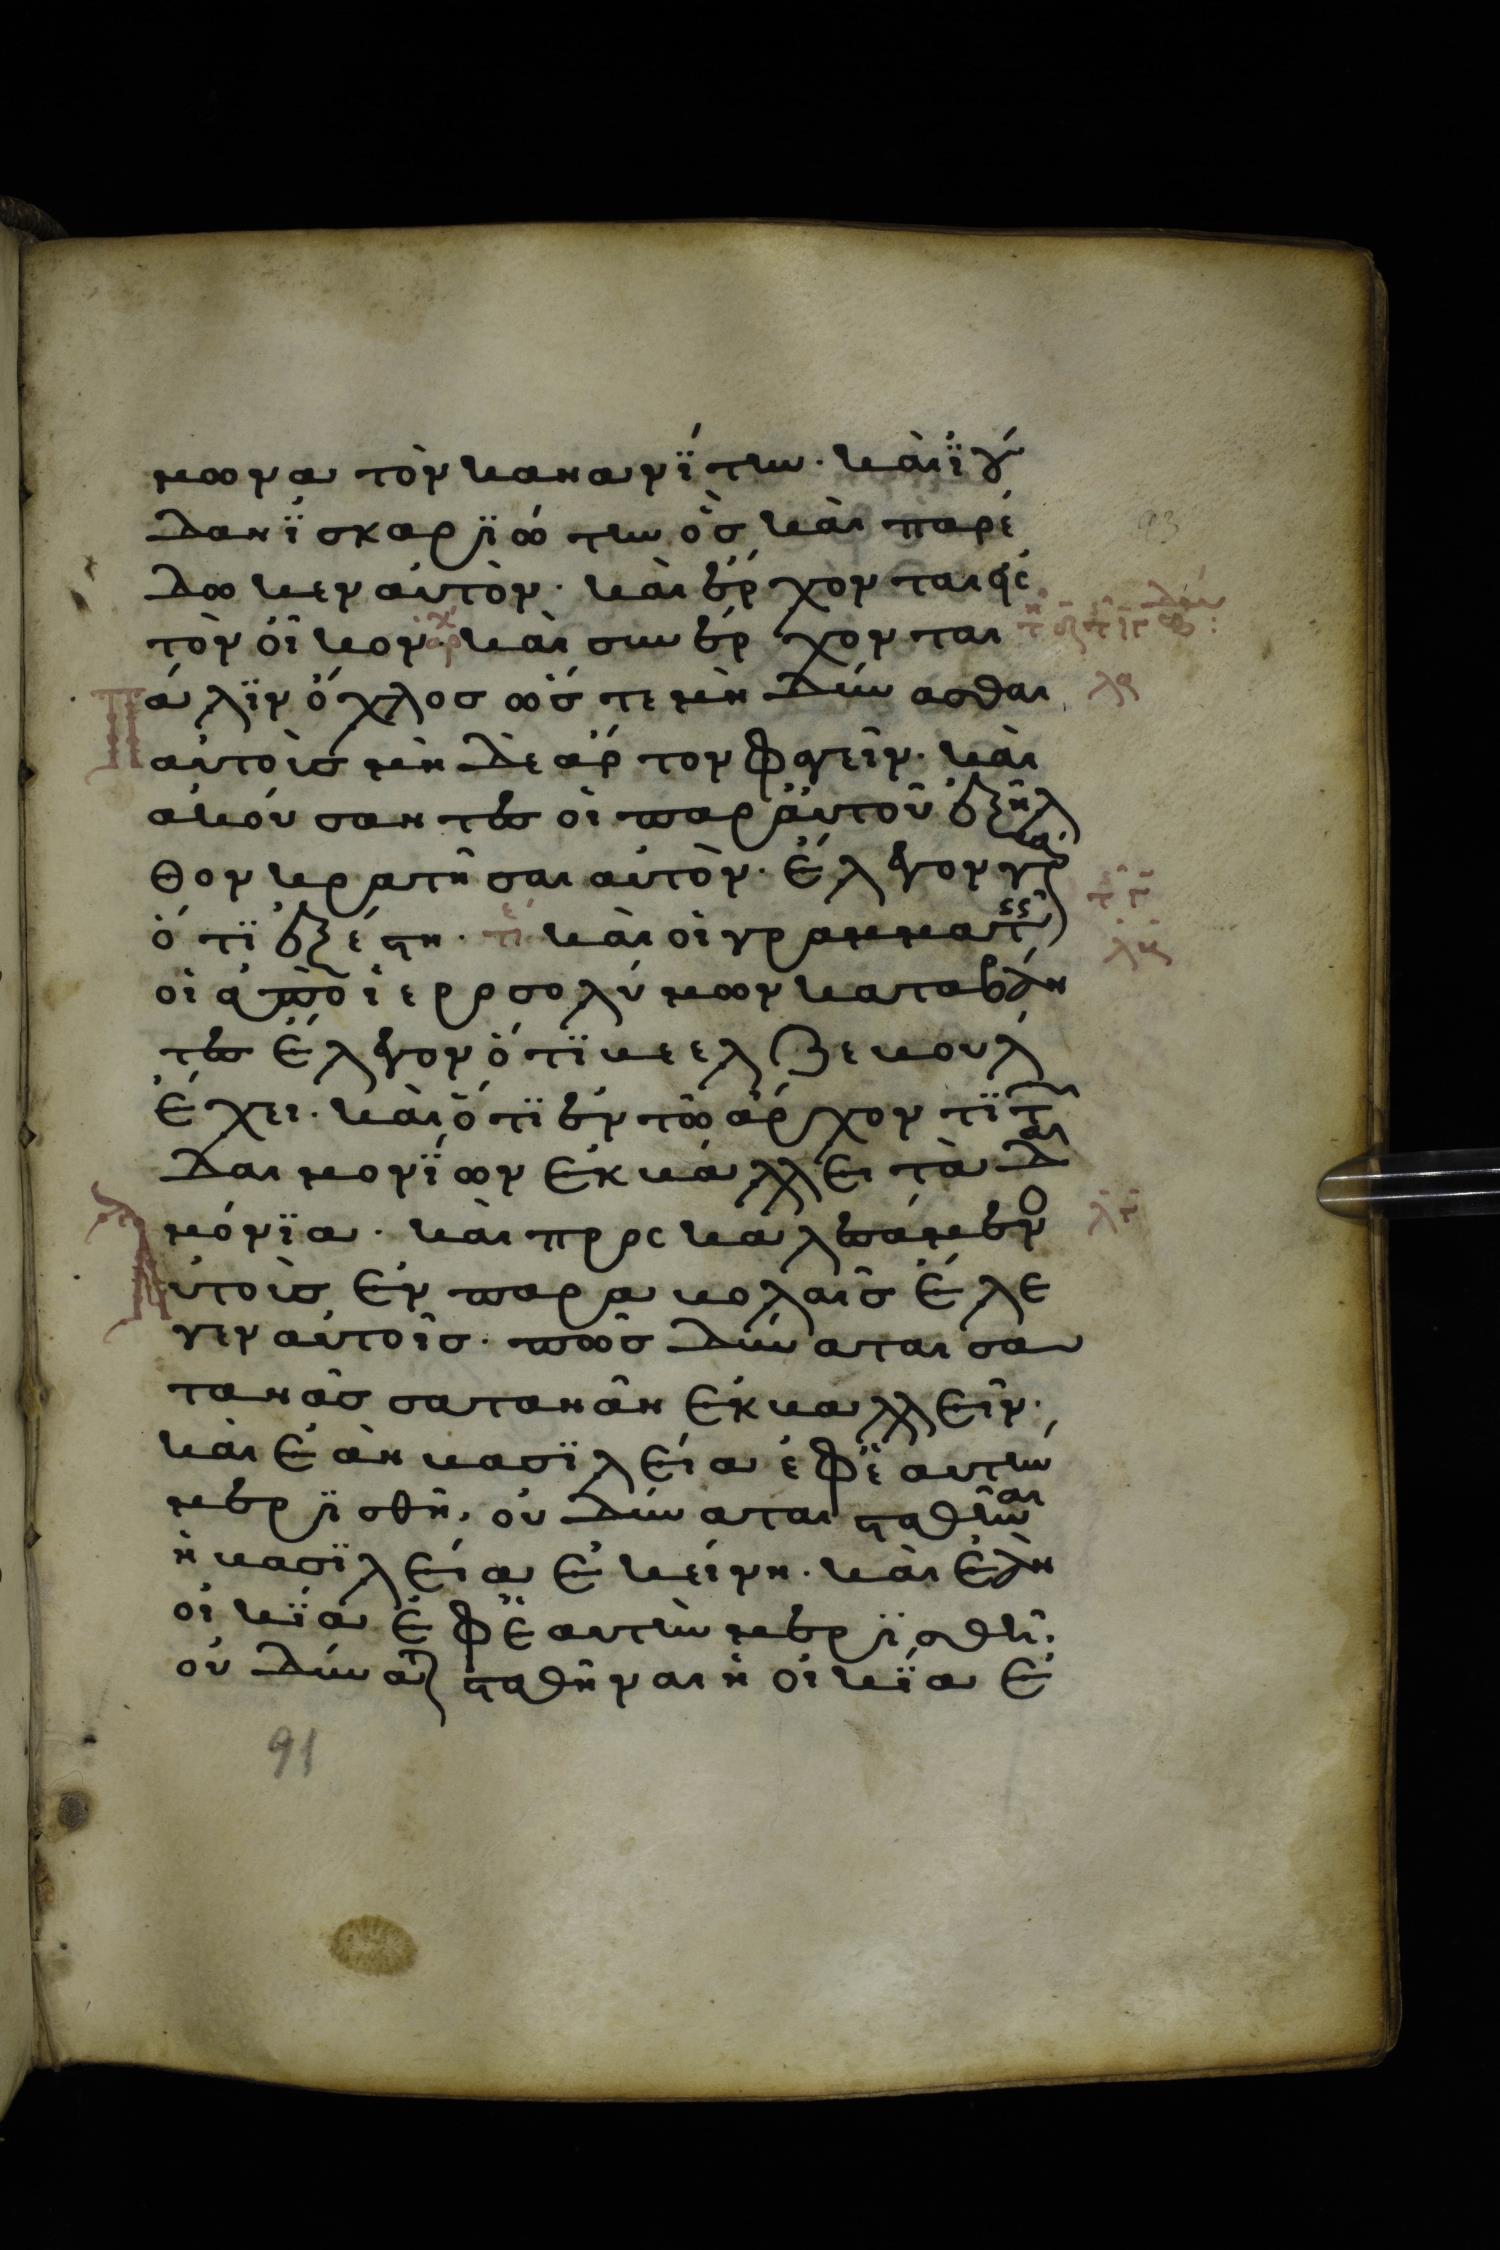 μωνα τὸν κανανί την· καὶ ἰού
δαν ἰσκαριώ την ὃσ καὶ παρέ
δω κεν αὐτὸν· καὶ έρ χον ται εἰς
τὸν οἶ κον· καὶ συν έρ χον ται
π
ά λϊν ὄ χλοσ ὥσ τε μὴ δύν ασθαι
αὐτοὺσ μὴ δὲ ἄρ τον φαγεῖν· καὶ
ακού σαν τεσ οἱ παρ ἀυτοῦ ἐξῆλ
θον κρ ατῆ σαι αὐτόν· ἔλ εγον γὰρ
ὅ τϊ ἐξ έ στη· καὶ οἱ γραμματ
οἱ ἀπὸ ἱερ οσολύ μων καταβάν
τεσ ἔλ εγον ὅ τϊ βεελ ζε βουλ
ἔ χει· καὶ ὅ τϊ ἐν τῶ ἄρ χον τϊ τ
δαι μονίων ἐκ βά λλει τὰ δαι
λη
μόνϊα· καὶ προς καλ εσάμεν ο
α
ὐτοὺσ ἐν παρα βολαῖσ ἔ λε
γεν αὐτοῖσ· πῶσ δύν αται σα
τανᾶσ σατανᾶν ἐκ βα λλεῖν·
καὶ ἐὰν βασϊ λεία ἐφ ἑ αυτην
μερϊ σθῆ, οὐ δύν αται σταθῆν αι
ἡ βασϊλεία ἐ κείνη· καὶ ἐὰν
οἰ κϊα ἐφ ἑ αυτὴν μερϊ σθῆ·
οὐ δύν α σταθῆναι ἡ οἰ κϊα ἐ
91
93